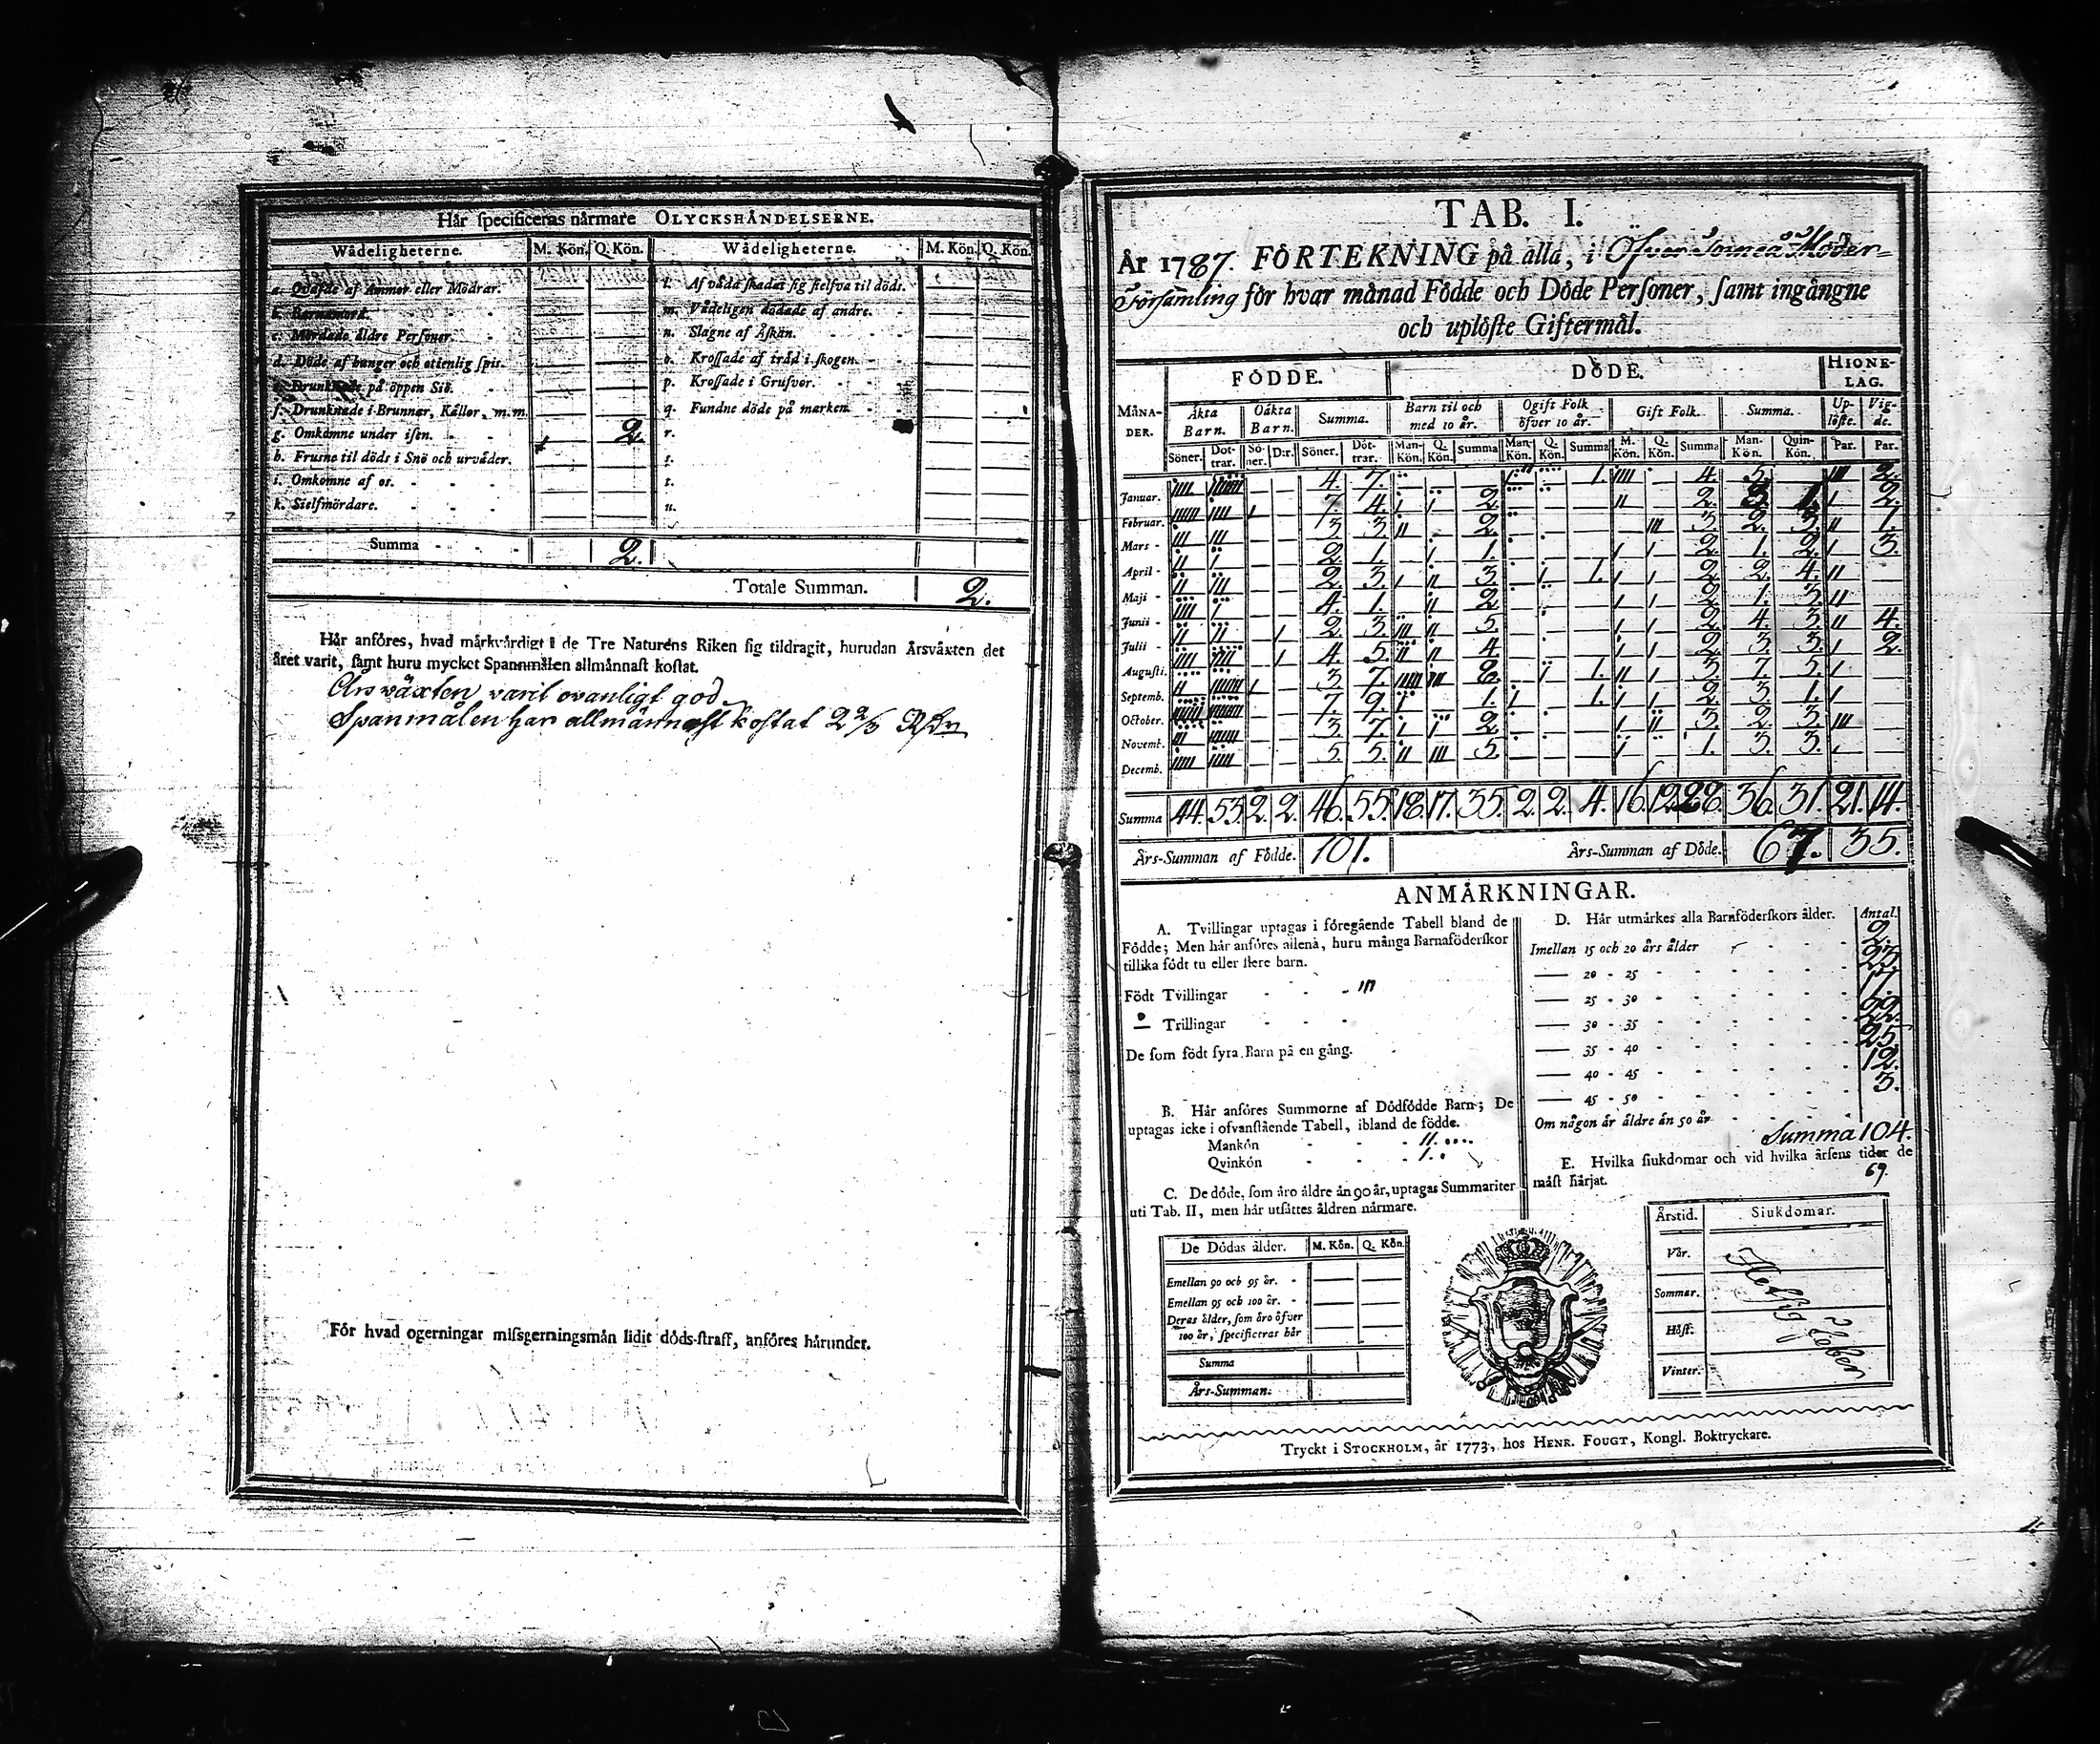 Hår specificeras nårmare OLYCKSHÅNDELSERNE.
Wådeligheterne. M. Kön. Q. Kön. Wådeligheterne. M. Kön. Q. Kön.
a. Qvafde af Ammor eller Mödrar. l. Af våda skadat sig sielfva til döds.
b. Barnamord. m. Vådeligen dödade af andre.
c. Mördade åldre Personer. n. Slagne af Åskan.
d. Döde af hunger och otienlig spis. o. Krossade af tråd i skogen.
e. Drunknade på öppen Siö. p. Krossade i Grufvor.
f. Drunknade i Brunnar, Kållor, m.m. q. Fundne döde på marken.
g. Omkomne under isen. 2. r.
h. Frusne til döds i Snö och urvåder. s.
i. Omkomne af os. t.
k. Sielfmördare. u.
Summa 2.
Totale Summan. 2.
Hår anföres, hvad mårkvårdigt i de Tre Naturens Riken sig tildragit, hurudan Årsvåxten det
året varit, samt huru mycket Spannmålen allmånnast kostat.
Årsväxten varit ovanligt god
Spanmålen har allmännast kostat 2 2/3 Rdr
För hvad ogerningar missgerningsmån lidit döds-straff, anföres hårunder.
TAB. I.
År 1787. FÖRTEKNING på alla, i Öfver Torneå Moder-
Församling för hvar månad Födde och Döde Personer, samt ingångne
och uplöste Giftermål.
FÖDDE. DÖDE. HIONE-LAG.
MÅNADER. Åkta Barn. Oåkta Barn. Summa. Barn til och med 10 år. Ogift Folk öfver 10 år. Gift Folk. Summa. Uplöste. Vigde.
Söner. Dottrar. Söner. D:r. Söner. Dottrar. Man-Kön. Q. Kön. Summa Man-Kön. Q. Kön. Summa M. Kön. Q. Kön. Summa Man-Kön. Quin-Kön. Par. Par.
Januar. 4. 7. 1. 4. 5. 2.
Februar. 7. 4. 2. 2. 3. 1. 2.
Mars 3. 3. 2. 3. 2. 3. 1.
April 2. 1. 1. 2. 1. 2. 3.
Maji 2. 3. 3. 1. 2. 2. 4.
Junii 4. 1. 2. 2. 1. 3.
Julii 2. 3. 5. 2. 4. 3. 4.
Augusti. 4. 5. 4. 2. 3. 3. 2.
Septemb. 3. 7. 8. 1. 3. 7. 5.
October. 7. 9. 1. 1. 2. 3. 1.
Novemb. 3. 7. 2. 3. 2. 3.
Decemb. 5. 5. 5. 1. 3. 3.
Summa 44. 53. 2. 2. 46. 55. 18. 17. 35. 2. 2. 4. 16. 12. 28. 36. 31. 21. 14.
Års-Summan af Födde. 101. Års-Summan af Döde. 67. 35.
ANMÅRKNINGAR.
A. Tvillingar uptagas i föregående Tabell bland de
Födde; Men hår anföres allena, huru många Barnaföderskor
tillika födt tu eller flere barn.
Födt Tvillingar III
— Trillingar
De som födt fyra Barn på en gång.
B. Hår anföres Summorne af Dödfödde Barn; De
uptagas icke i ofvanstående Tabell, ibland de födde.
Mankön II.
Qvinkön I.
C. De döde, som åro åldre ån 90 år, uptagas Summariter
uti Tab. II, men hår utsåttes åldren nårmare.
De Dödas ålder. M. Kön. Q. Kön.
Emellan 90 och 95 år.
Emellan 95 och 100 år.
Deras ålder, som åro öfver
100 år, specificeras hår
Summa
Års-Summan.
D. Hår utmårkes alla Barnföderskors ålder. Antal.
Imellan 15 och 20 års ålder 2.
— 20 - 25
— 25 - 30
— 30 - 35
— 35 - 40 25.
— 40 - 45 12.
— 45 - 50 3.
Om någon år åldre ån 50 år
Summa 104.
E. Hvilka siukdomar och vid hvilka årsens tider de
måst hårjat.
69.
Årstid. Siukdomar.
Vår.
Sommar.
Höst.
Vinter.
Hetsig Feber
Tryckt i STOCKHOLM, år 1773, hos HENR. FOUGT, Kongl. Boktryckare.